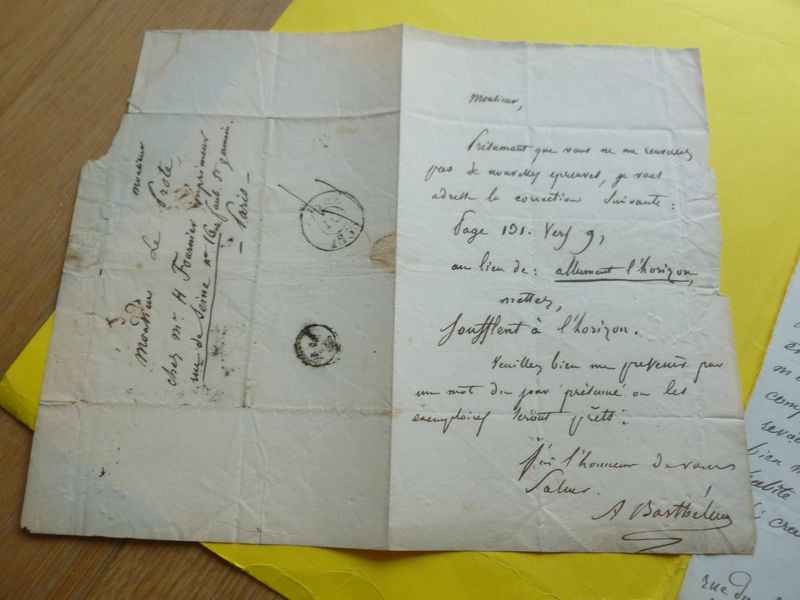 monsieur
Monsieur Le Prote
chez Mr H Fournier imprimeur
rue de Seine no 16 faub. St germain.
- Paris -
Monsieur,
Présumant que vous ne me renverrez
pas de nouvelles epreuves, je vous
adresse la correction suivante :
Page 131. Vers 9,
au lieu de : allument l'horizon,
mettez,
soufflent à l'horizon.
Veuillez bien me prevenir par
un mot du jour présumé ou les
exemplaires seront prêts.
J'ai l'honneur de vous
saluer.
A Barthélemy
rue du